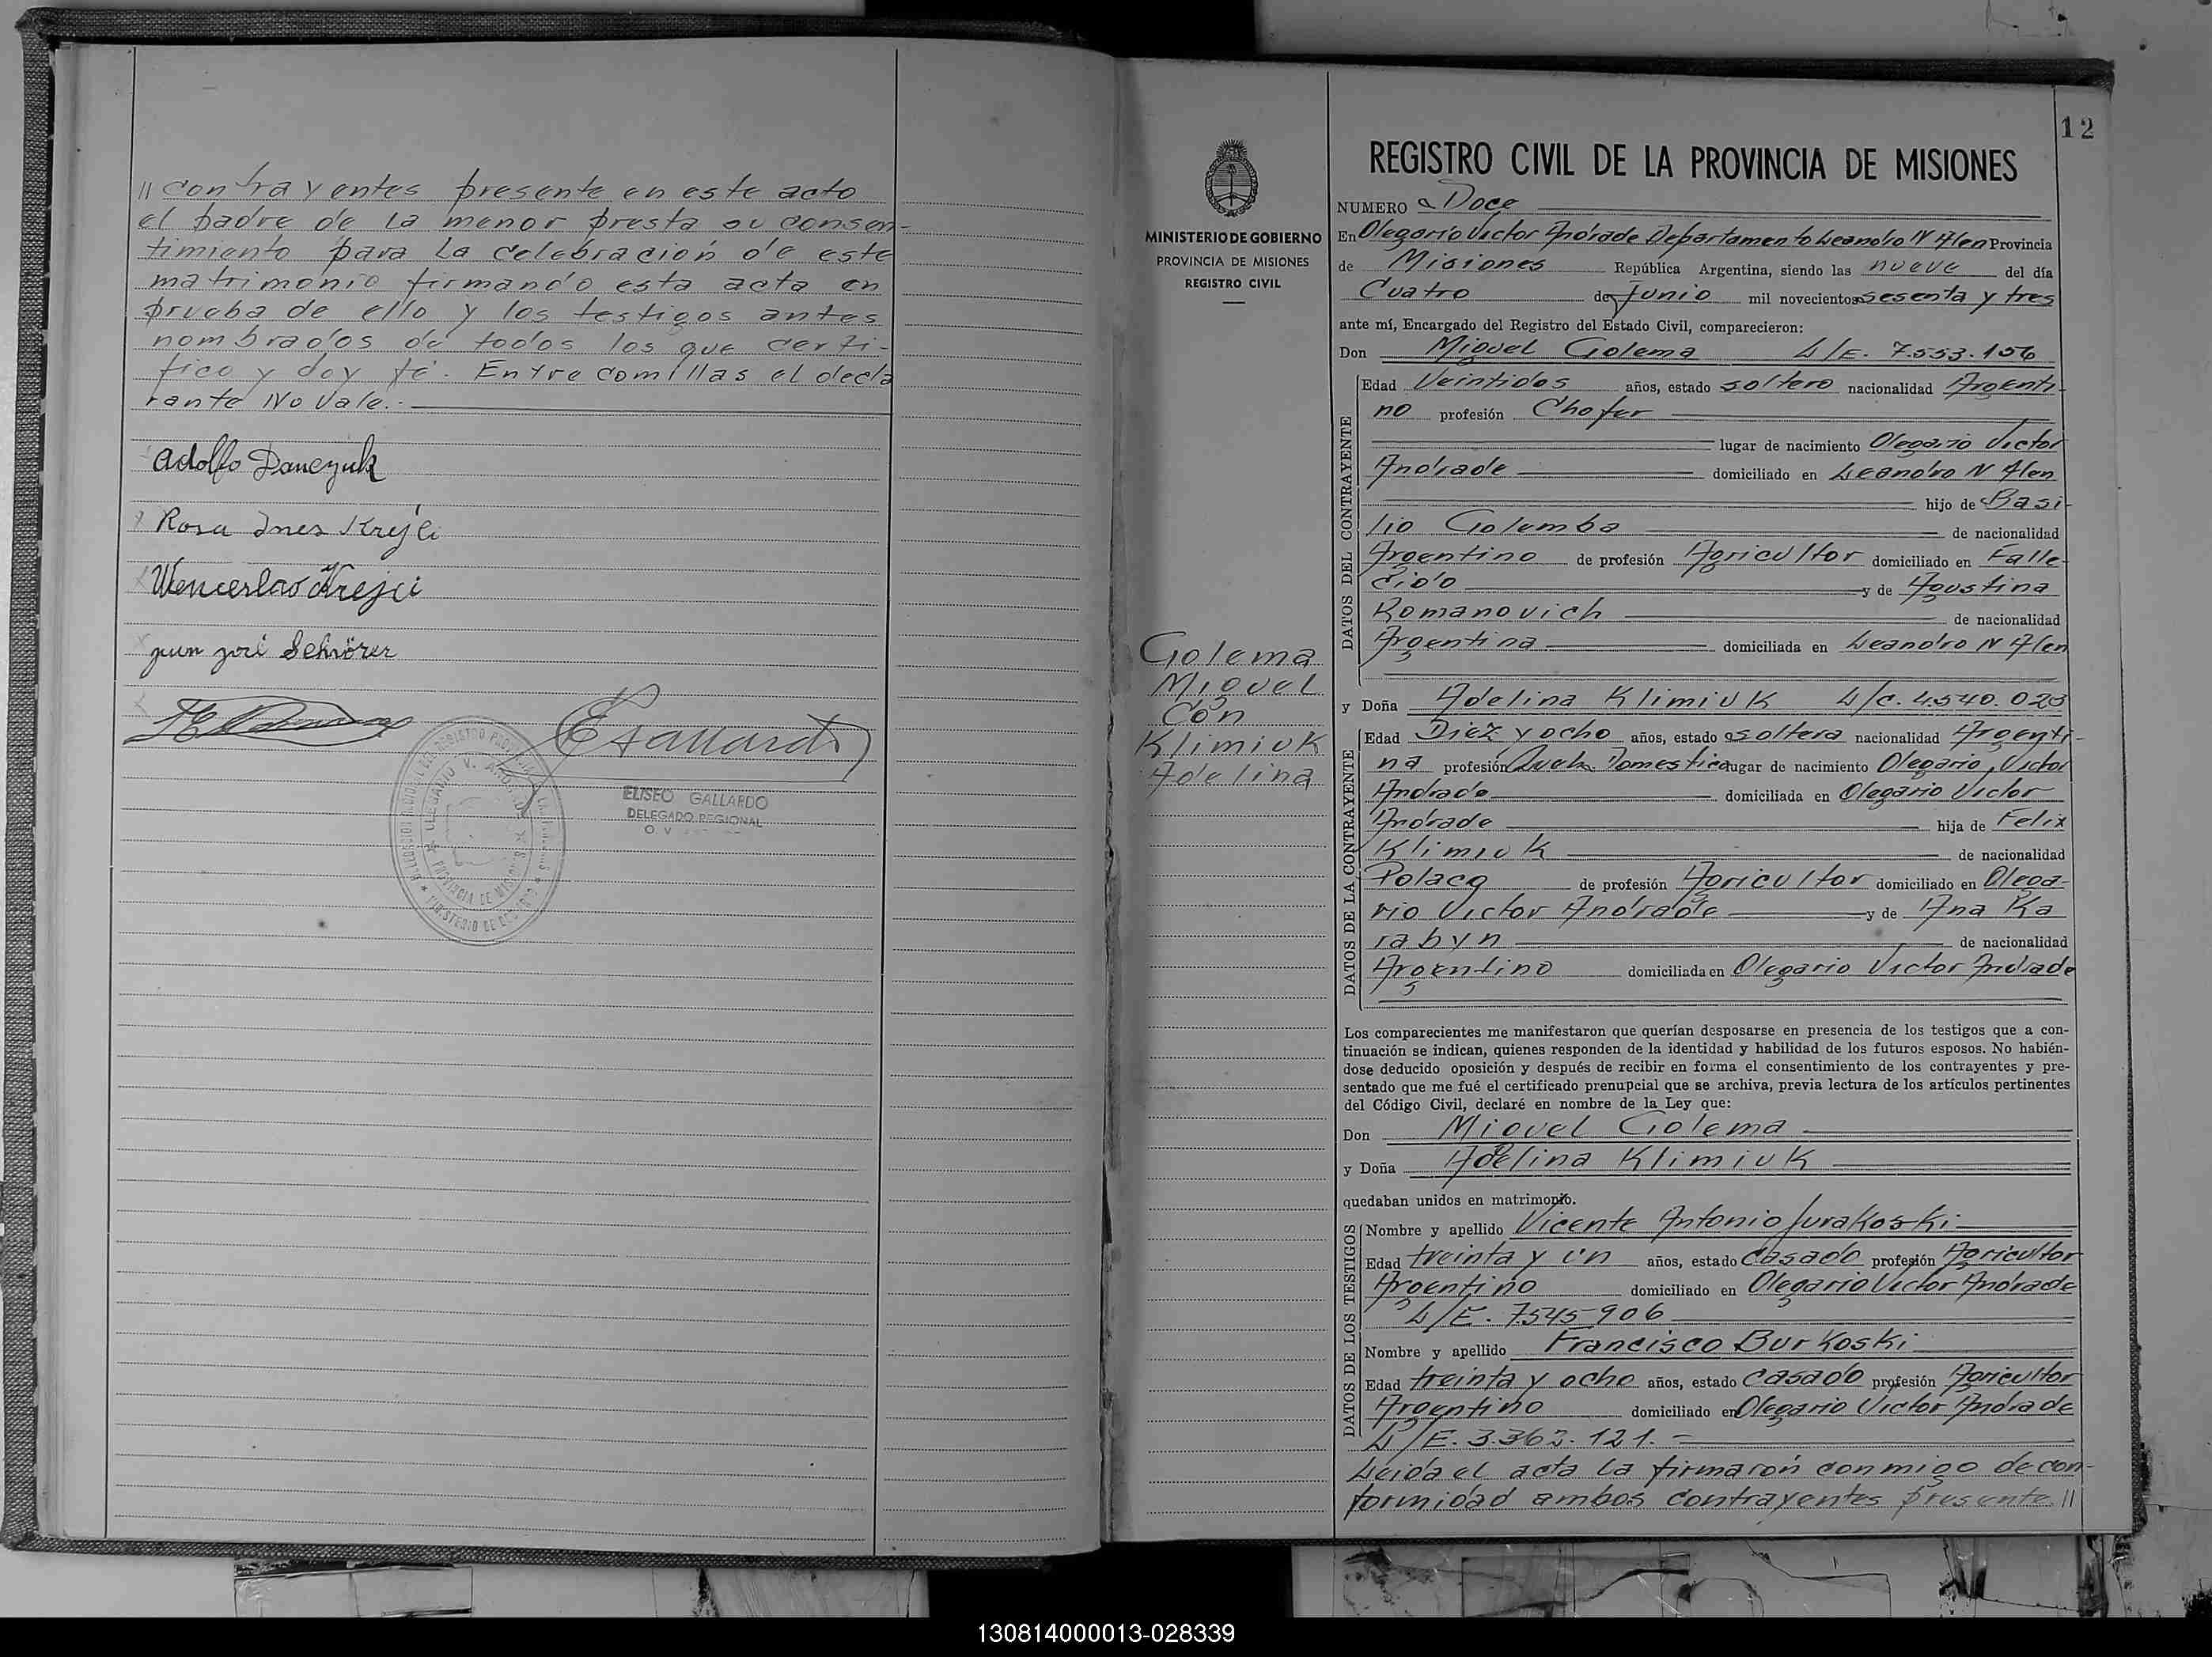 // contrayentes presente en este acto
el padre de la menor presta su consen-
timiento para la celebración de este
matrimonio firmando esta acta en
prueba de ello y los testigos antes
nombrados de todos los que certi-
fico y doy fé. Entre comillas el decla
rante No Vale.-
Adolfo Danczuk
Rosa Ines Krejci
Wenceslao Krejci
juan josé Schörer
ELISEO GALLARDO
DELEGADO REGIONAL
O. V.
MINISTERIO DE GOBIERNO
PROVINCIA DE MISIONES
REGISTRO CIVIL
Golema
Miguel
Con
Klimiuk
Adelina
12
REGISTRO CIVIL DE LA PROVINCIA DE MISIONES
NUMERO Doce
En Olegario Victor Andrade Departamento Leandro N Alen Provincia
de Misiones República Argentina, siendo las nueve del día
Cuatro de Junio mil novecientos sesenta y tres
ante mí, Encargado del Registro del Estado Civil, comparecieron:
Don Miguel Golema L/E. 7.553.156
DATOS DEL CONTRAYENTE
Edad Veintidos años, estado soltero nacionalidad Argenti-
no profesión Chofer
lugar de nacimiento Olegario Victor
Andrade domiciliado en Leandro N Alen
hijo de Basi-
lio Golemba de nacionalidad
Argentino de profesión Agricultor domiciliado en Falle-
cido y de Agustina
Romanovich de nacionalidad
Argentina domiciliada en Leandro N Alen
y Doña Adelina Klimiuk L/C. 4.540.023
DATOS DE LA CONTRAYENTE
Edad Diez y ocho años, estado soltera nacionalidad Argenti-
na profesión Queh. Domestico lugar de nacimiento Olegario Victor
Andrade domiciliada en Olegario Victor
Andrade hija de Felix
Klimiuk de nacionalidad
Polaco de profesión Agricultor domiciliado en Olega-
rio Victor Andrade y de Ana Ka
rabyn de nacionalidad
Argentino domiciliada en Olegario Victor Andrade
Los comparecientes me manifestaron que querían desposarse en presencia de los testigos que a con-
tinuación se indican, quienes responden de la identidad y habilidad de los futuros esposos. No habién-
dose deducido oposición y después de recibir en forma el consentimiento de los contrayentes y pre-
sentado que me fué el certificado prenupcial que se archiva, previa lectura de los artículos pertinentes
del Código Civil, declaré en nombre de la Ley que:
Don Miguel Golema
y Doña Adelina Klimiuk
quedaban unidos en matrimonio.
DATOS DE LOS TESTIGOS
Nombre y apellido Vicente Antonio Jurakoski
Edad treinta y un años, estado Casado profesión Agricultor
Argentino domiciliado en Olegario Victor Andrade
L/E. 7545906
Nombre y apellido Francisco Burkoski
Edad treinta y ocho años, estado Casado profesión Agricultor
Argentino domiciliado en Olegario Victor Andrade
L/E. 3.362.121.-
Leida el acta la firmarón conmigo de con-
formidad ambos contrayentes presente //
130814000013-028339